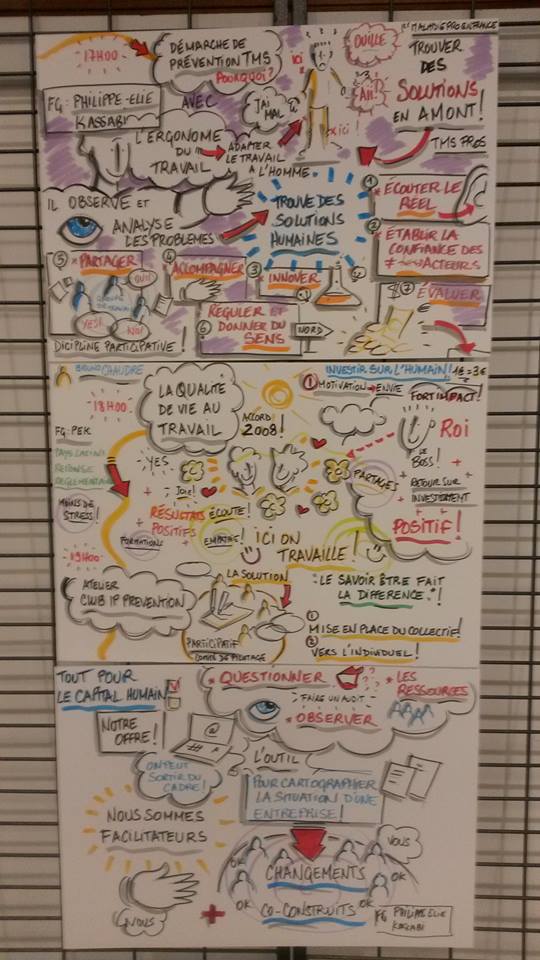 17H00
DÉMARCHE DE
PRÉVENTION TMS
POURQUOI?
ICI
OUILLE
AÏE!
J'AI
MAL
ici!
1ère MALADIE PRO EN FRANCE
TROUVER
DES
SOLUTIONS
EN AMONT!
TMS PROS
FG: PHILIPPE-ELIE
KASSABI
AVEC
L'ERGONOME
DU
TRAVAIL
ADAPTER
LE TRAVAIL
A L'HOMME.
IL OBSERVE ET
ANALYSE
LES PROBLEMES
TROUVE DES
SOLUTIONS
HUMAINES
1 * ÉCOUTER LE
RÉEL
2 * ÉTABLIR LA
CONFIANCE DES
ACTEURS
5 * PARTAGER
OUI!
YES!
NO!
DICIPLINE PARTICIPATIVE!
4 ACCOMPAGNER
3 * INNOVER
6 RÉGULER ET
DONNER DU
SENS
NORD
7 ÉVALUER
€
BRUNO CHAUDRE
18H00
FG: PEK
PAYS LATINS
RÉPONSE
RÉGLEMENTAIRE
MOINS DE
STRESS!
19H00
LA QUALITÉ
DE VIE AU
TRAVAIL
ACCORD!
2008!
INVESTIR SUR L'HUMAIN!
1€=3€
1 MOTIVATION → ENVIE
FORT IMPACT!
ROI
LE
BOSS!
RETOUR SUR
INVESTISSEMENT
POSITIF!
PARTAGES
YES
JOIE!
RÉSULTATS
POSITIFS
FORMATIONS
ÉCOUTE!
EMPATHIE!
ICI ON
TRAVAILLE!
ATELIER
CLUB IP PREVENTION
LA SOLUTION
PARTICIPATIF
COMITÉ DE PILOTAGE
"LE SAVOIR ÊTRE FAIT
LA DIFFERENCE."!
1
MISE EN PLACE DU COLLECTIF!
2
VERS L'INDIVIDUEL!
TOUT POUR
LE CAPITAL HUMAIN
NOTRE
OFFRE!
* QUESTIONNER
???
FAIRE UN AUDIT
* OBSERVER
* LES
RESSOURCES
@
#
ON PEUT
SORTIR DU
CADRE!
L'OUTIL
POUR CARTOGRAPHIER
LA SITUATION D'UNE
ENTREPRISE!
NOUS SOMMES
FACILITATEURS
NOUS
+
VOUS
OK
OK
CHANGEMENTS
OK
OK
CO-CONSTRUITS
FG PHILIPPE-ELIE
KASSABI